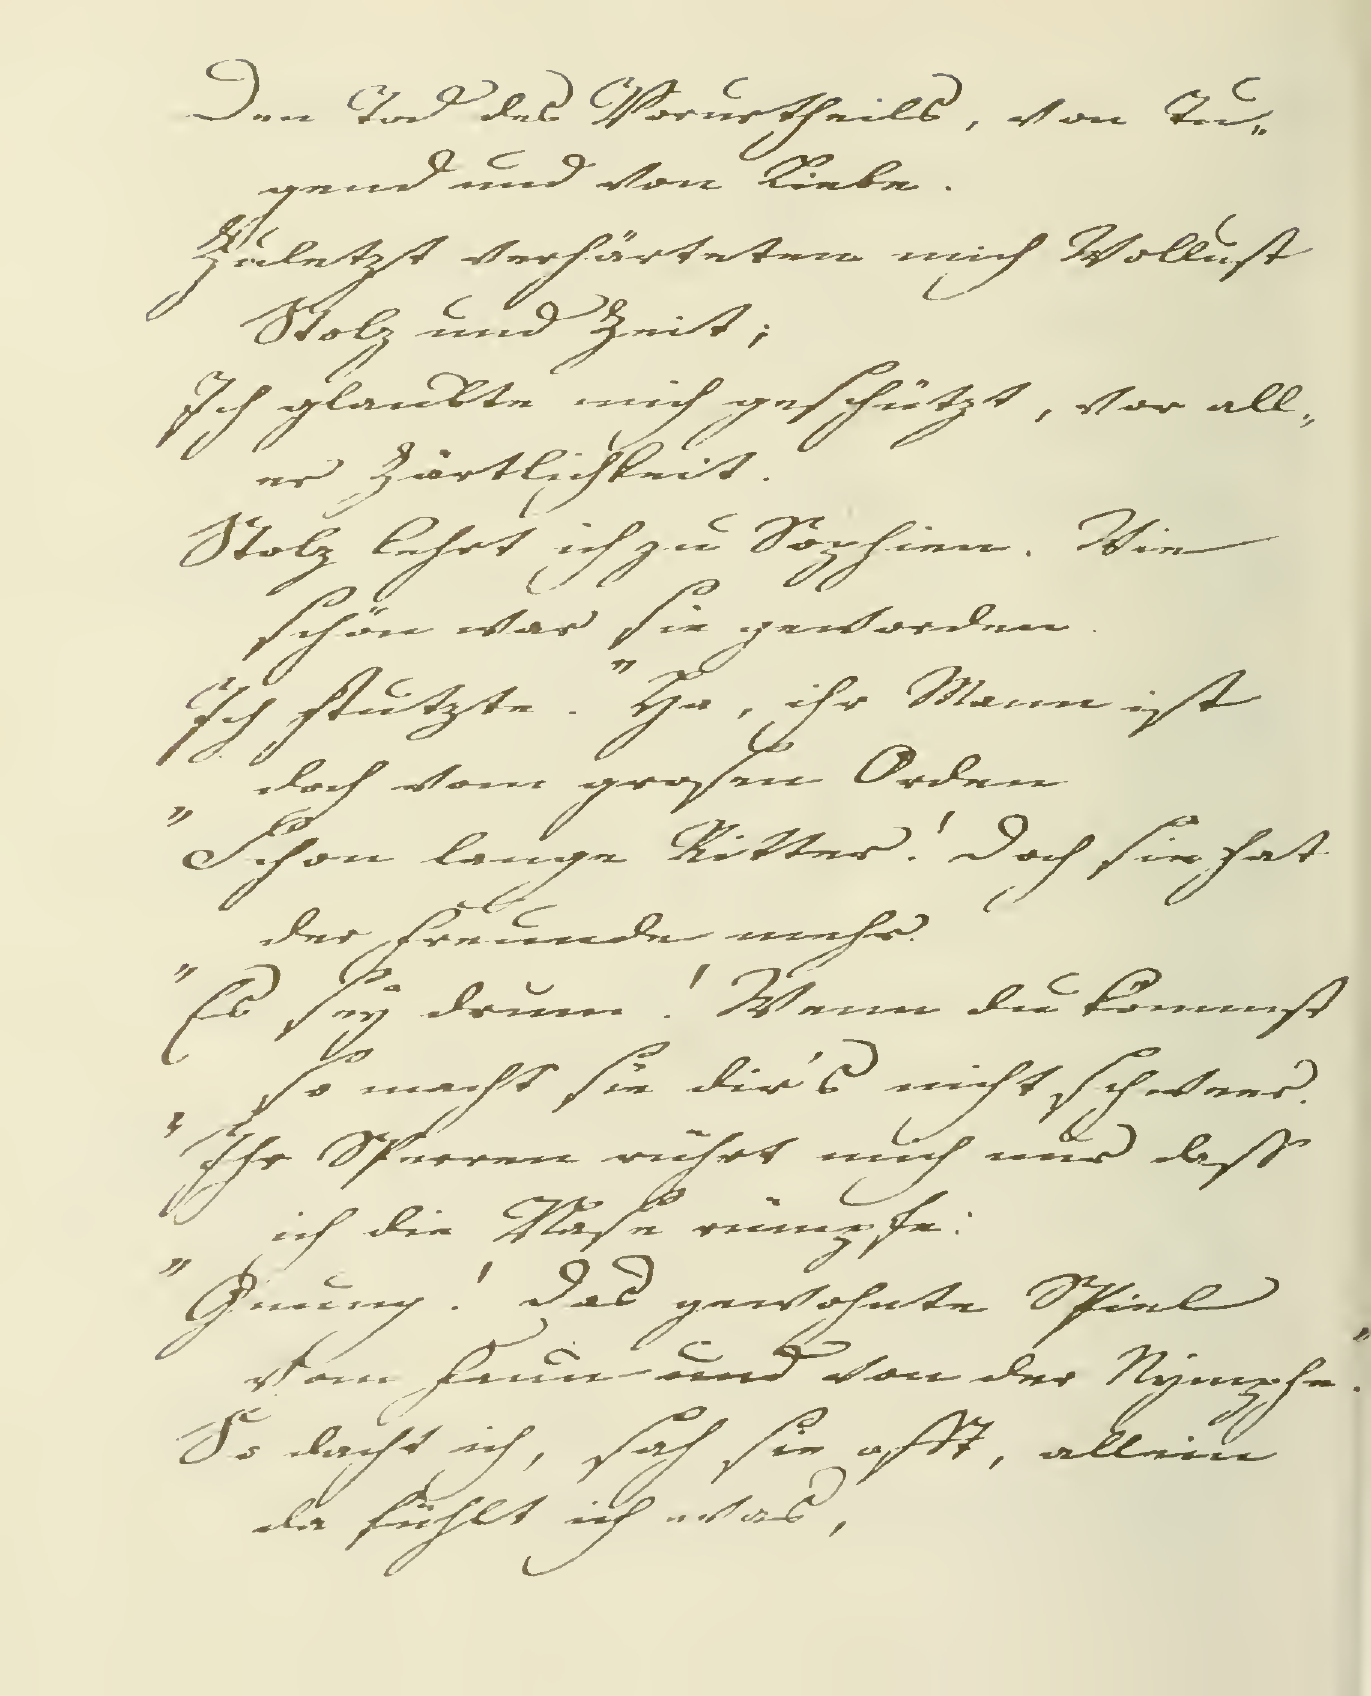 Den Tod des Vorurtheils, von Tu„
gend und von Liebe.
Zuletzt verhärteten mich Wollust
Stolz und Zeit;
Ich glaubte mich geschützt, vor all„
er Zärtlichkeit.
Stolz kehrt ich zu Sophien. Wie
schön war sie geworden
Ich stutzte. "Ha, ihr Mann ist
doch vom grosen Orden
" Schon lange Ritter! Doch sie hat
der Freunde mehr.
" Es sey drum! Wenn du kommst
so macht sie dir's nicht schweer.
" Ihr Sperren rührt mich nur dass
ich die Nase rümpfe:
" Gnung! Das gewohnte Spiel
vom Faun und von der Nymphe."
So dacht ich, sah sie offt, allein
da fühlt ich was,